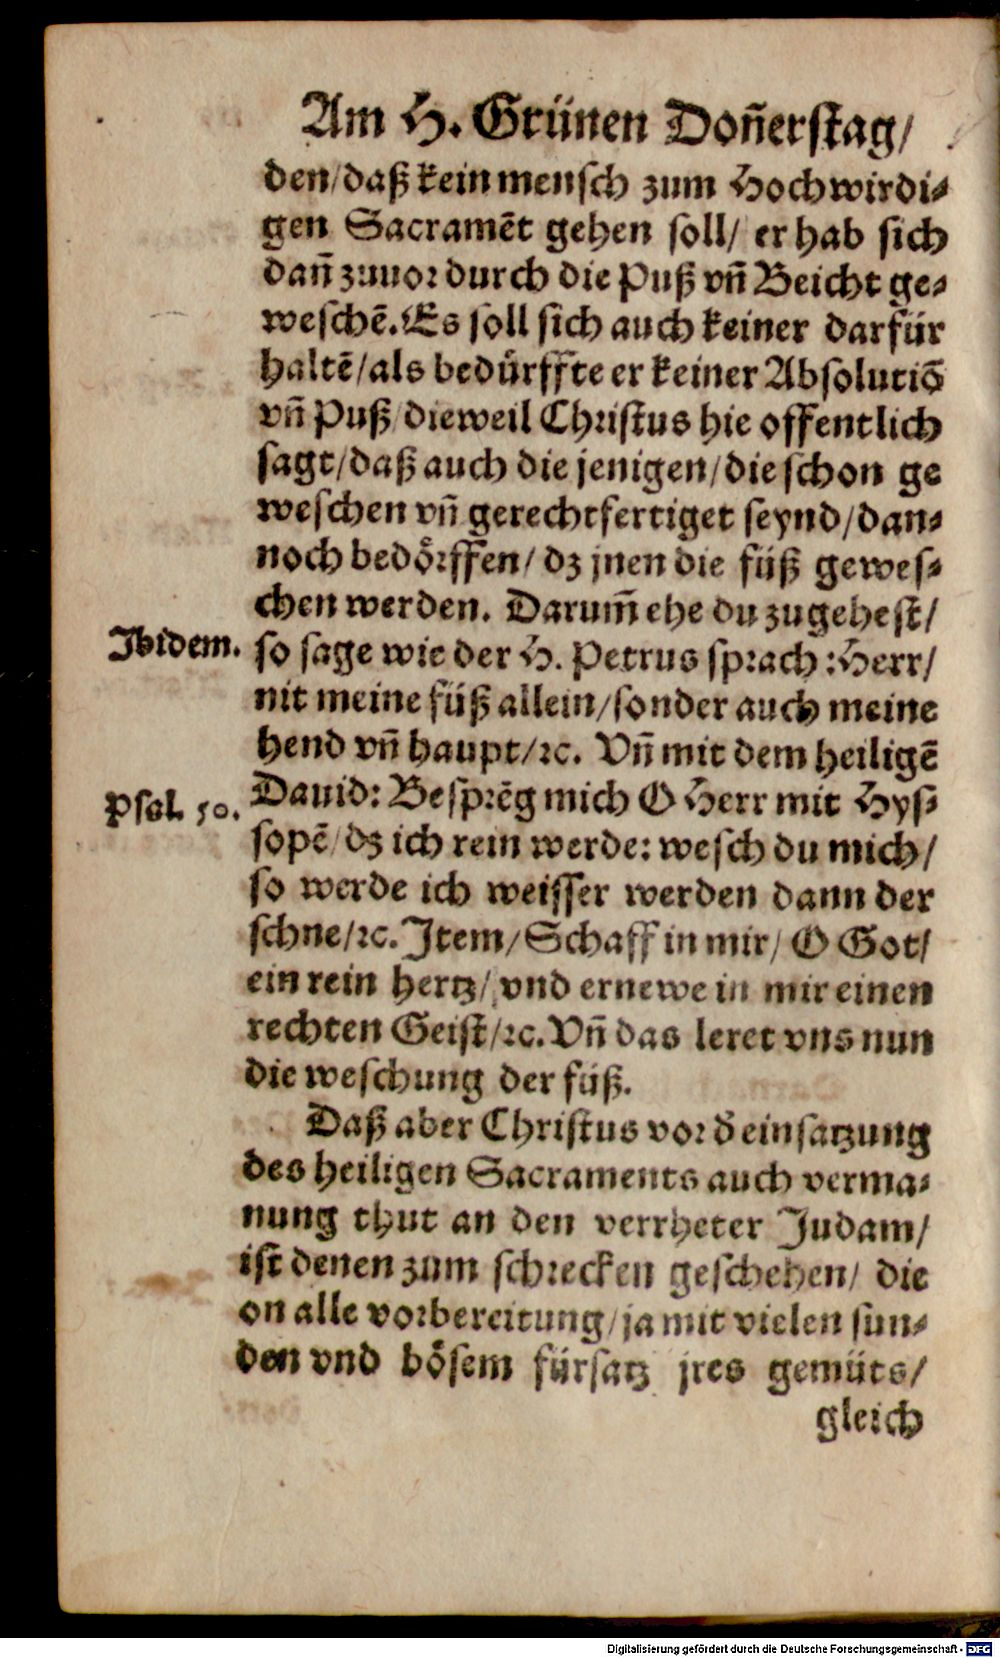 Am H. Grünen Don̄erstag/
den/daß kein mensch zum Hochwirdi-
gen Sacramēt gehen soll/ er hab sich
dan̄ zuuor durch die Puß vn̄ Beicht ge-
weschē. Es soll sich auch keiner darfür
haltē/als bedürffte er keiner Absolutiō
vn̄ Puß/dieweil Christus hie offentlich
sagt/daß auch die jenigen/die schon ge
weschen vn̄ gerechtfertiget seynd/dan-
noch bedörffen/ dz jnen die füß gewes-
chen werden. Darum̄ ehe du zugehest/
Ibidem. so sage wie der H. Petrus sprach: Herr/
nit meine füß allein/sonder auch meine
hend vn̄ haupt/ꝛc. Vn̄ mit dem heiligē
Psal. 50. Dauid: Besprēg mich O Herr mit Hys-
sopē/dz ich rein werde: wesch du mich/
so werde ich weisser werden dann der
schne/ꝛc. Item/Schaff in mir/ O Got/
ein rein hertz/ vnd ernewe in mir einen
rechten Geist/ꝛc. Vn̄ das leret vns nun
die weschung der füß.
Daß aber Christus vor d̄ einsatzung
des heiligen Sacraments auch verma-
nung thut an den verrheter Judam/
ist denen zum schrecken geschehen/ die
on alle vorbereitung/ja mit vielen sun-
den vnd bösem fürsatz jres gemüts/
gleich
Digitalisierung gefördert durch die Deutsche Forschungsgemeinschaft - DFG